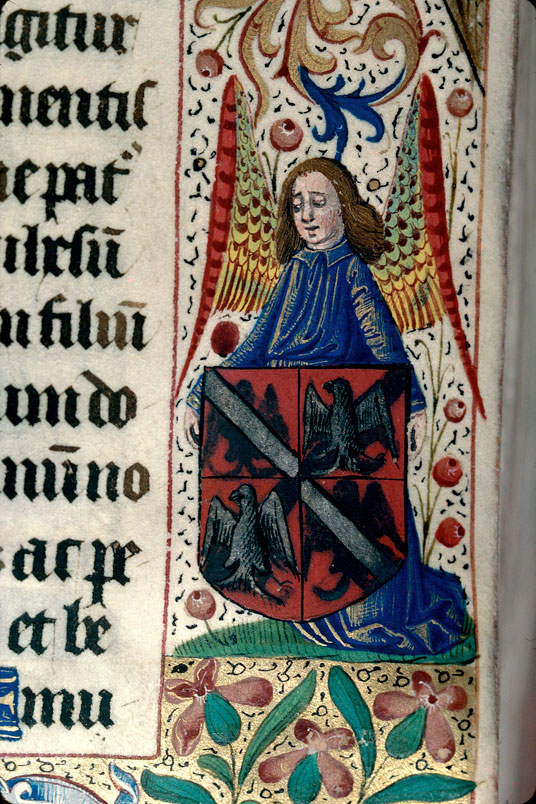 igitur
mentis
ne pat̄
ilesū
m filiū
undo
mūno
ac pe
et be
mu